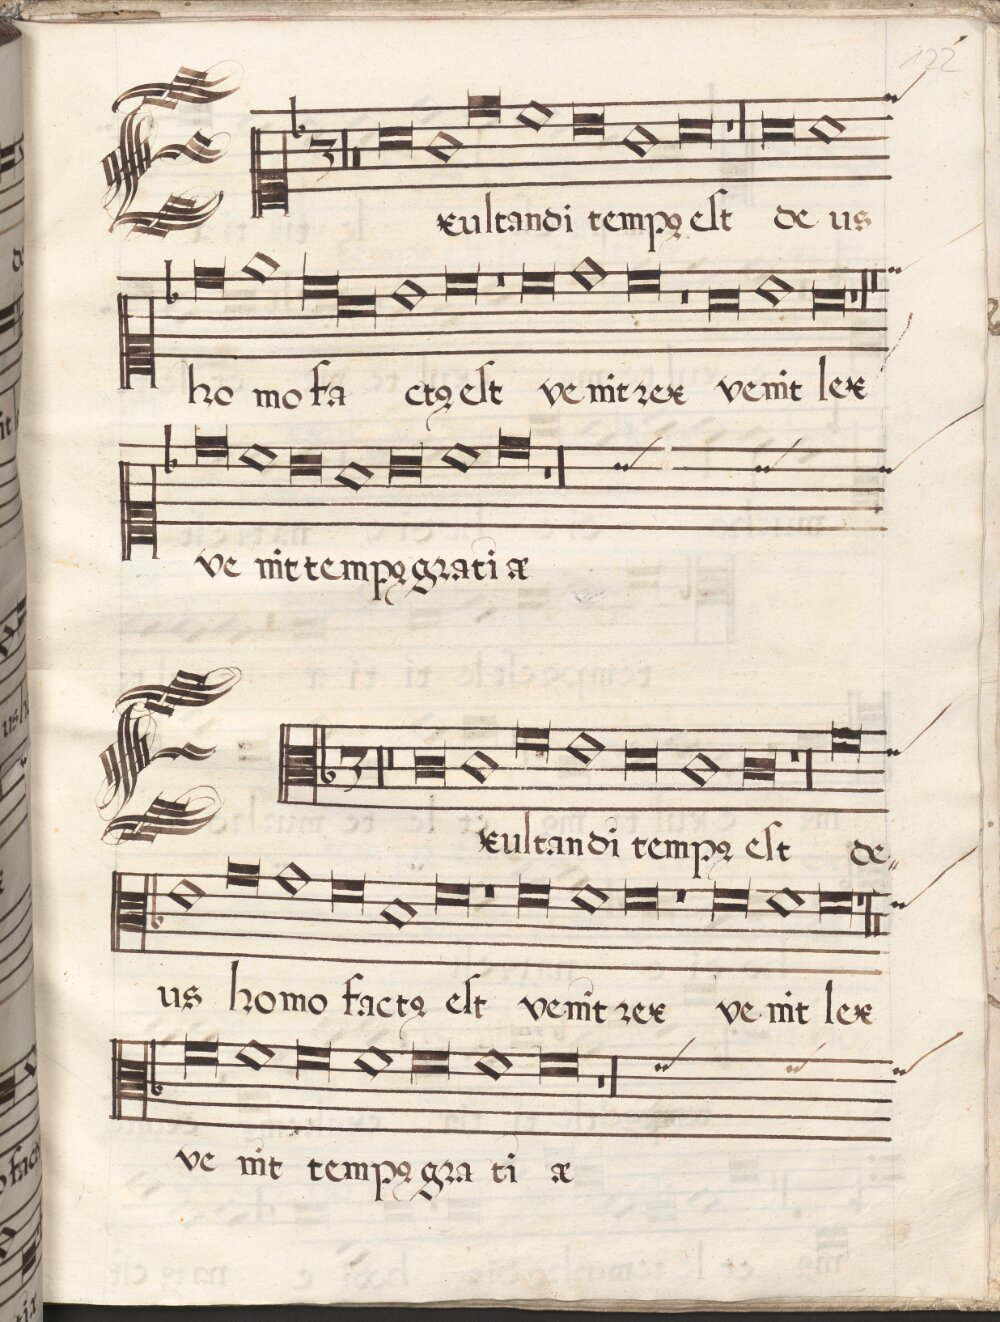 122
Exultandi tempꝰ est de us
ho mo fa ctꝰ est ve nit rex venit lex
ve nit tempꝰ grati æ
Exultandi tempꝰ est de
us homo factꝰ est venit rex ve nit lex
ve nit tempꝰ gra ti æ